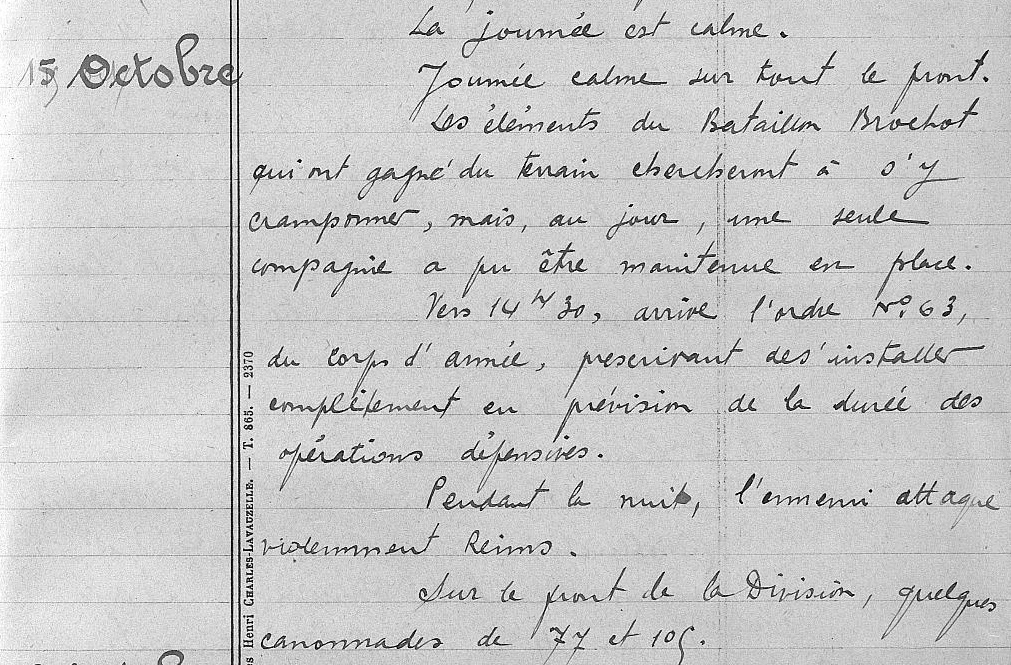 La journée est calme.
15 Octobre
Journée calme sur tout le front.
Les éléments du Bataillon Brochot
qui ont gagné du terrain chercheront à s'y
cramponner, mais, au jour, une seule
compagnie a pu être maintenue en place.
Vers 14 h 30, arrive l'ordre N° 63,
du corps d'armée, prescrivant de s'installer
complètement en prévision de la durée des
opérations défensives.
Pendant la nuit, l'ennemi attaque
violemment Reims.
Sur le front de la Division, quelques
canonnades de 77 et 105.
s Henri CHARLES-LAVAUZELLE. — T. 865. — 2370